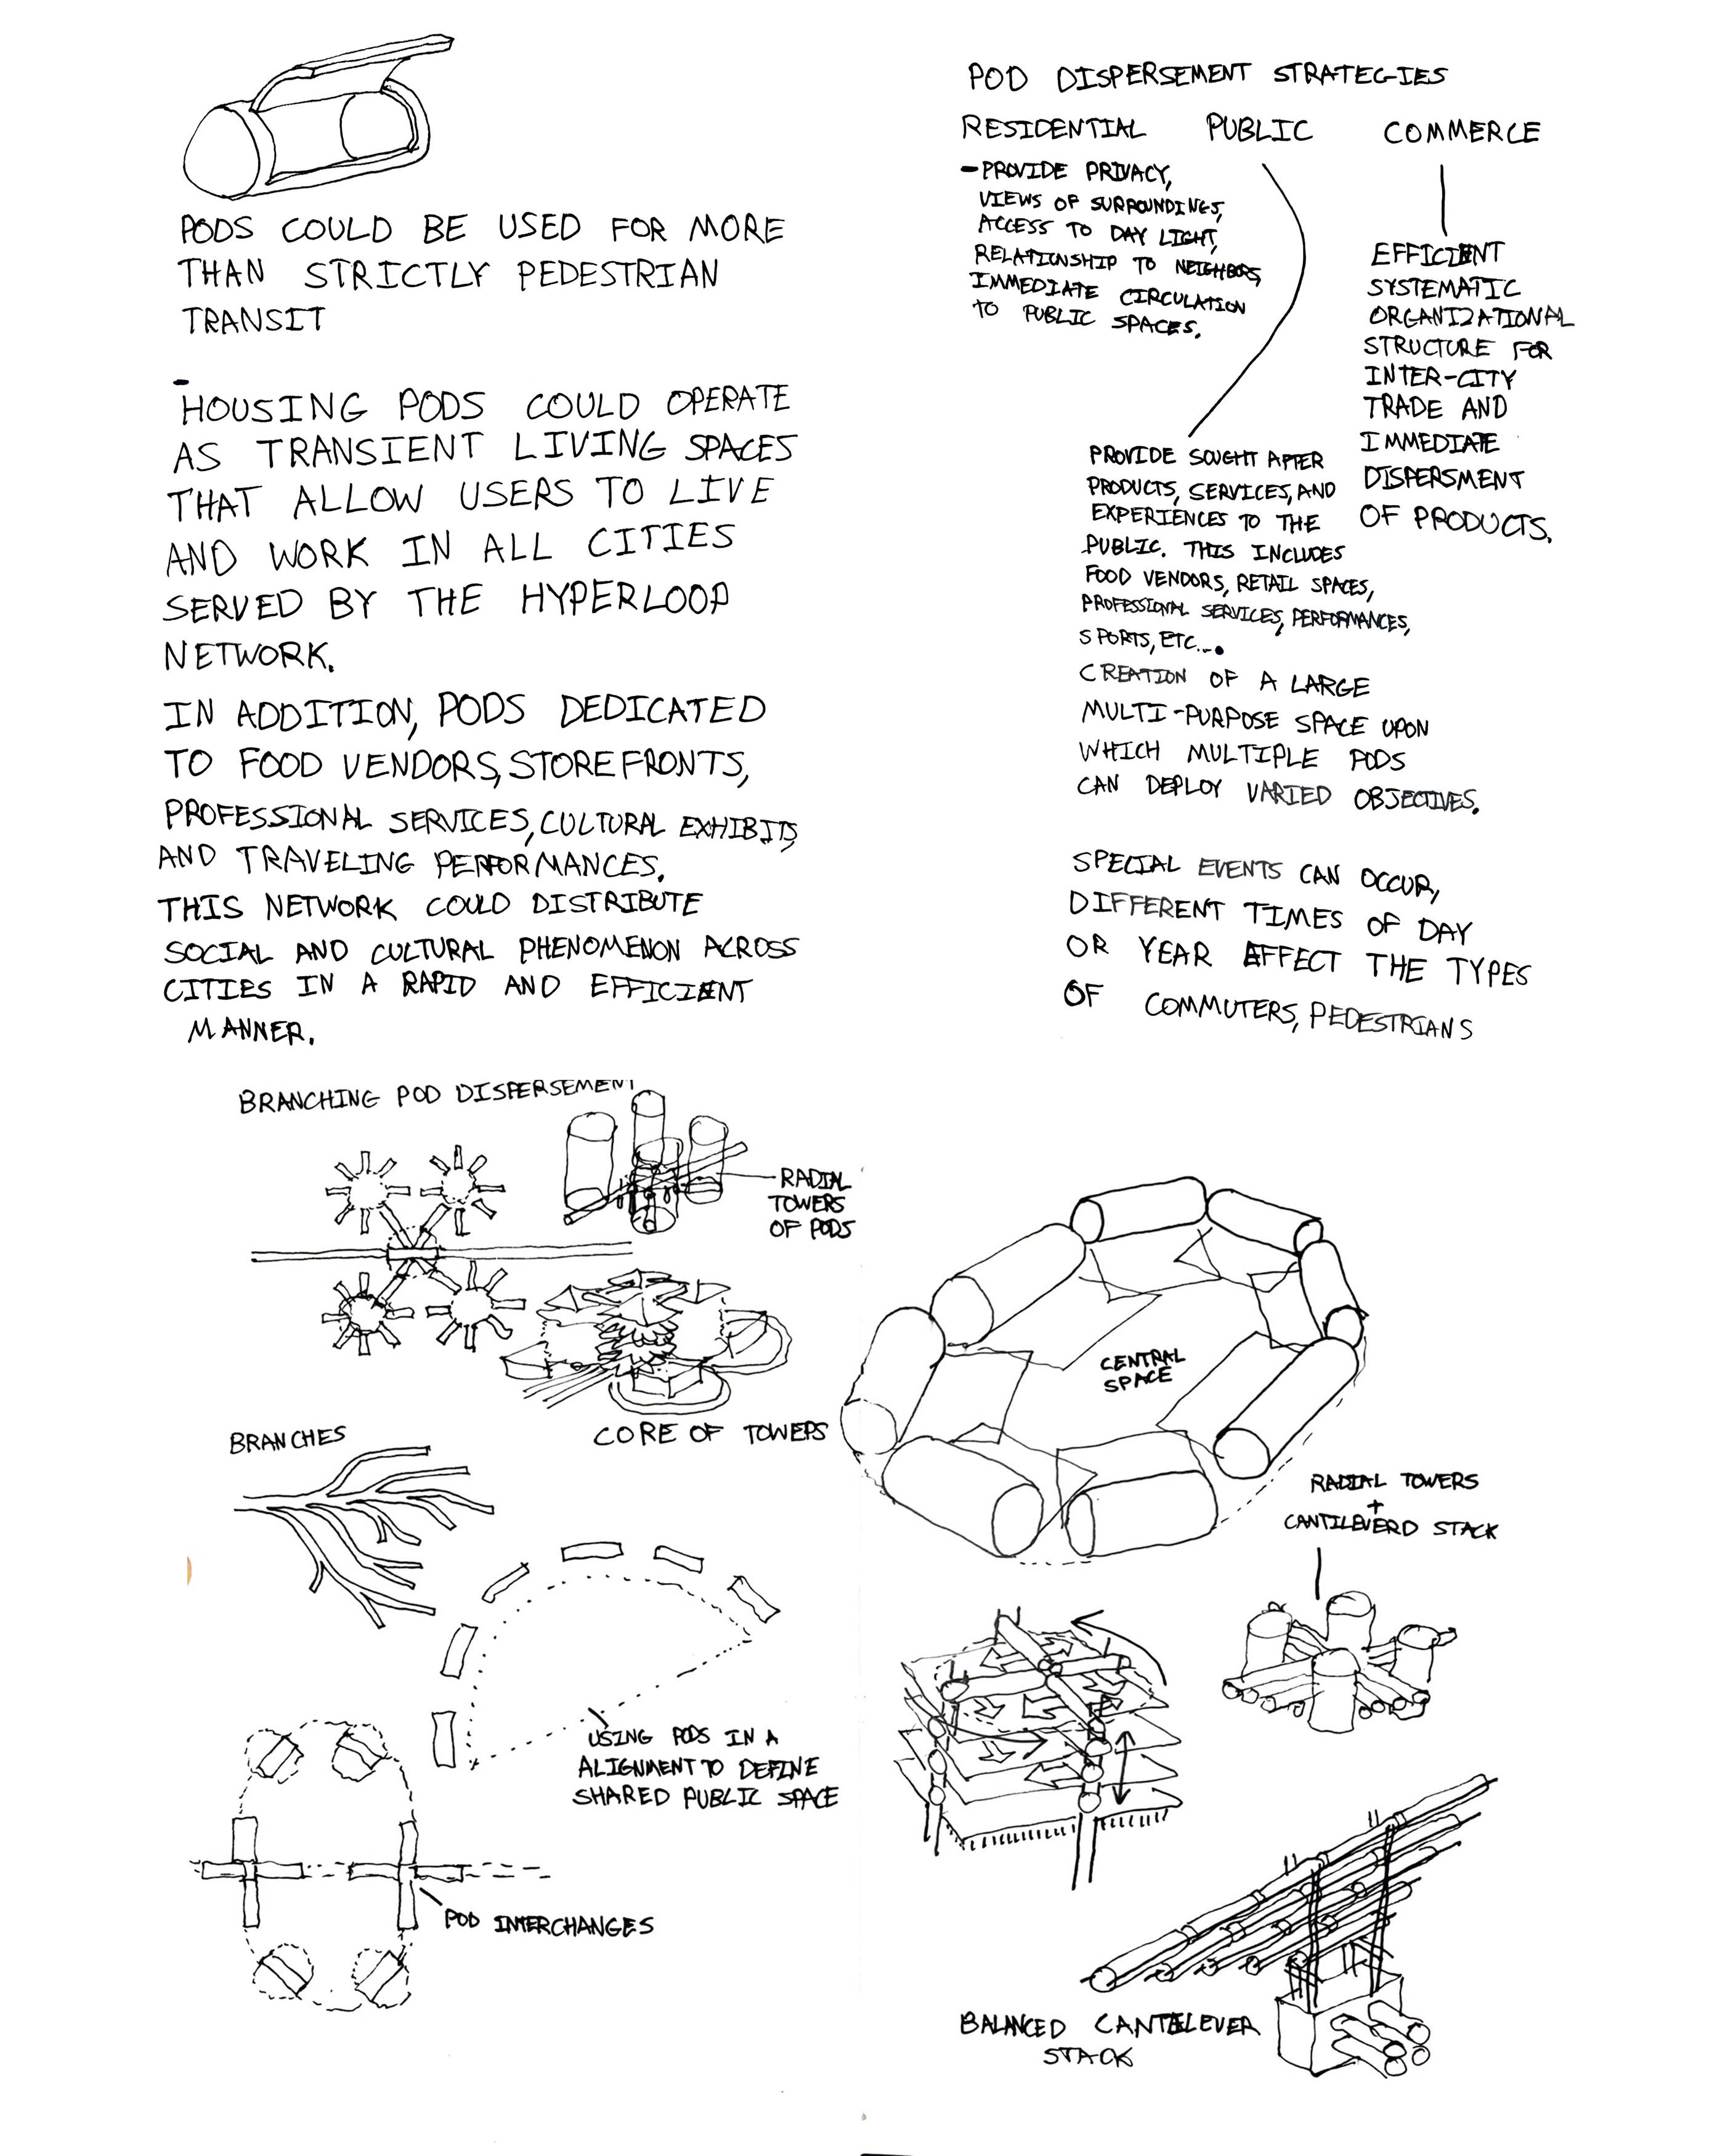 PODS COULD BE USED FOR MORE
THAN STRICTLY PEDESTRIAN
TRANSIT
-
HOUSING PODS COULD OPERATE
AS TRANSIENT LIVING SPACES
THAT ALLOW USERS TO LIVE
AND WORK IN ALL CITIES
SERVED BY THE HYPERLOOP
NETWORK.
IN ADDITION, PODS DEDICATED
TO FOOD VENDORS, STOREFRONTS,
PROFESSIONAL SERVICES, CULTURAL EXHIBITS,
AND TRAVELING PERFORMANCES.
THIS NETWORK COULD DISTRIBUTE
SOCIAL AND CULTURAL PHENOMENON ACROSS
CITIES IN A RAPID AND EFFICIENT
MANNER.
POD DISPERSEMENT STRATEGIES
RESIDENTIAL PUBLIC COMMERCE
- PROVIDE PRIVACY,
VIEWS OF SURROUNDINGS,
ACCESS TO DAY LIGHT,
RELATIONSHIP TO NEIGHBORS,
IMMEDIATE CIRCULATION
TO PUBLIC SPACES.
EFFICIENT
SYSTEMATIC
ORGANIZATIONAL
STRUCTURE FOR
INTER-CITY
TRADE AND
IMMEDIATE
DISPERSMENT
OF PRODUCTS.
PROVIDE SOUGHT AFTER
PRODUCTS, SERVICES, AND
EXPERIENCES TO THE
PUBLIC. THIS INCLUDES
FOOD VENDORS, RETAIL SPACES,
PROFESSIONAL SERVICES, PERFORMANCES,
SPORTS, ETC...
CREATION OF A LARGE
MULTI-PURPOSE SPACE UPON
WHICH MULTIPLE PODS
CAN DEPLOY VARIED OBJECTIVES.
SPECIAL EVENTS CAN OCCUR,
DIFFERENT TIMES OF DAY
OR YEAR AFFECT THE TYPES
OF COMMUTERS, PEDESTRIANS
BRANCHING POD DISPERSEMENT
RADIAL
TOWERS
OF PODS
CORE OF TOWERS
BRANCHES
USING PODS IN A
ALIGNMENT TO DEFINE
SHARED PUBLIC SPACE
POD INTERCHANGES
CENTRAL
SPACE
RADIAL TOWERS
+
CANTILEVERD STACK
BALANCED CANTILEVER
STACK